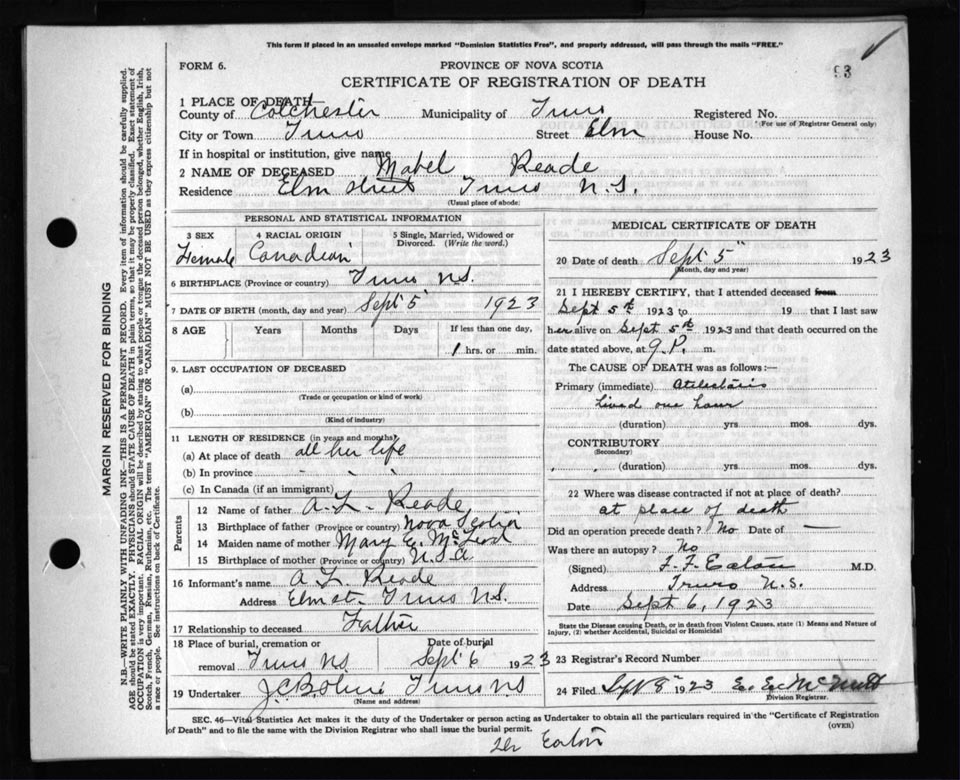 This form if placed in an unsealed envelope marked "Dominion Statistics Free", and properly addressed, will pass through the mails "FREE."
93
FORM 6.
PROVINCE OF NOVA SCOTIA
CERTIFICATE OF REGISTRATION OF DEATH
1 PLACE OF DEATH
County of Colchester Municipality of Truro Registered No.
(For use of Registrar General only)
City or Town Truro Street Elm House No.
If in hospital or institution, give name
2 NAME OF DECEASED Mabel Reade
Residence Elm street Truro N.S.
(Usual place of abode)
PERSONAL AND STATISTICAL INFORMATION
3 SEX 4 RACIAL ORIGIN 5 Single, Married, Widowed or Divorced. (Write the word.)
Female Canadian
6 BIRTHPLACE (Province or country) Truro N.S.
7 DATE OF BIRTH (month, day and year) Sept 5 1923
8 AGE Years Months Days If less than one day,
1 hrs. or min.
9. LAST OCCUPATION OF DECEASED
(a)
(Trade or occupation or kind of work)
(b)
(Kind of industry)
11 LENGTH OF RESIDENCE (in years and months)
(a) At place of death all her life
(b) In province - - -
(c) In Canada (if an immigrant)
Parents
12 Name of father A. L. Reade
13 Birthplace of father (Province or country) Nova Scotia
14 Maiden name of mother Mary E. McLeod
15 Birthplace of mother (Province or country)
16 Informant's name A L Reade
Address Elm st. Truro N.S.
17 Relationship to deceased Father
18 Place of burial, cremation or removal Truro NS Date of burial Sept 6 1923
19 Undertaker Truro NS
(Name and address)
MEDICAL CERTIFICATE OF DEATH
20 Date of death Sept 5" 1923
(Month, day and year)
21 I HEREBY CERTIFY, that I attended deceased from
Sept 5th 1923 to 19 that I last saw
her alive on Sept 5th 1923 and that death occurred on the
date stated above, at 9 P. m.
The CAUSE OF DEATH was as follows:—
Primary (immediate)
Lived one hour
(duration) yrs. mos. dys.
CONTRIBUTORY
(Secondary)
(duration) yrs. mos. dys.
22 Where was disease contracted if not at place of death?
at place of death
Did an operation precede death? No Date of —
Was there an autopsy? No
(Signed) F. F. Eaton M.D.
Address Truro N.S.
Date Sept 6, 1923
State the Disease causing Death, or in death from Violent Causes, state (1) Means and Nature of Injury, (2) whether Accidental, Suicidal or Homicidal
23 Registrar's Record Number
24 Filed Sept 8" 1923
Division Registrar.
SEC. 46—Vital Statistics Act makes it the duty of the Undertaker or person acting as Undertaker to obtain all the particulars required in the "Certificate of Registration
of Death" and to file the same with the Division Registrar who shall issue the burial permit. (OVER)
Dr Eaton
MARGIN RESERVED FOR BINDING
N.B.—WRITE PLAINLY WITH UNFADING INK—THIS IS A PERMANENT RECORD. Every item of information should be carefully supplied.
AGE should be stated EXACTLY. PHYSICIANS should STATE CAUSE OF DEATH in plain terms, so that it may be properly classified. Exact statement of
OCCUPATION is very important. RACIAL ORIGIN will be described by stating to what people or tongue the deceased person belonged, whether English, Irish,
Scotch, French, German, Russian, Ruthenian, etc. The terms "AMERICAN" OR "CANADIAN" MUST NOT BE USED as they express citizenship but not
a race or people. See instructions on back of Certificate.